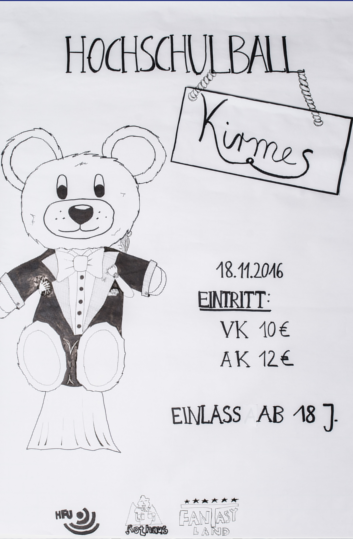 HOCHSCHULBALL
Kirmes
18.11.2016
EINTRITT:
VK 10€
AK 12€
EINLASS AB 18 J.
HFU
FANTASY
LAND